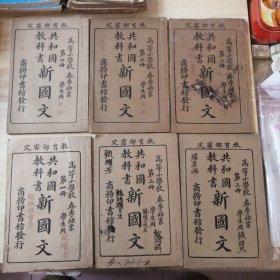 教育部審定
高等小學校 春季始業
共和國教科書
新國文
第四冊 學生用
商務印書館發行
教育部審定
高等小學校 春季始業
共和國教科書
新國文
學生用
商務印書館發行
教育部審定
高等小學校 春季始業
共和國教科書
新國文
學生用
商務印書館發行
教育部審定
高等小學校 春季始業
共和國教科書
新國文
第一冊 學生用
商務印書館發行
教育部審定
高等小學校 春季始業
共和國教科書
新國文
商務印書館發行
教育部審定
高等小學校 春季始業
共和國教科書
新國文
學生用
商務印書館發行